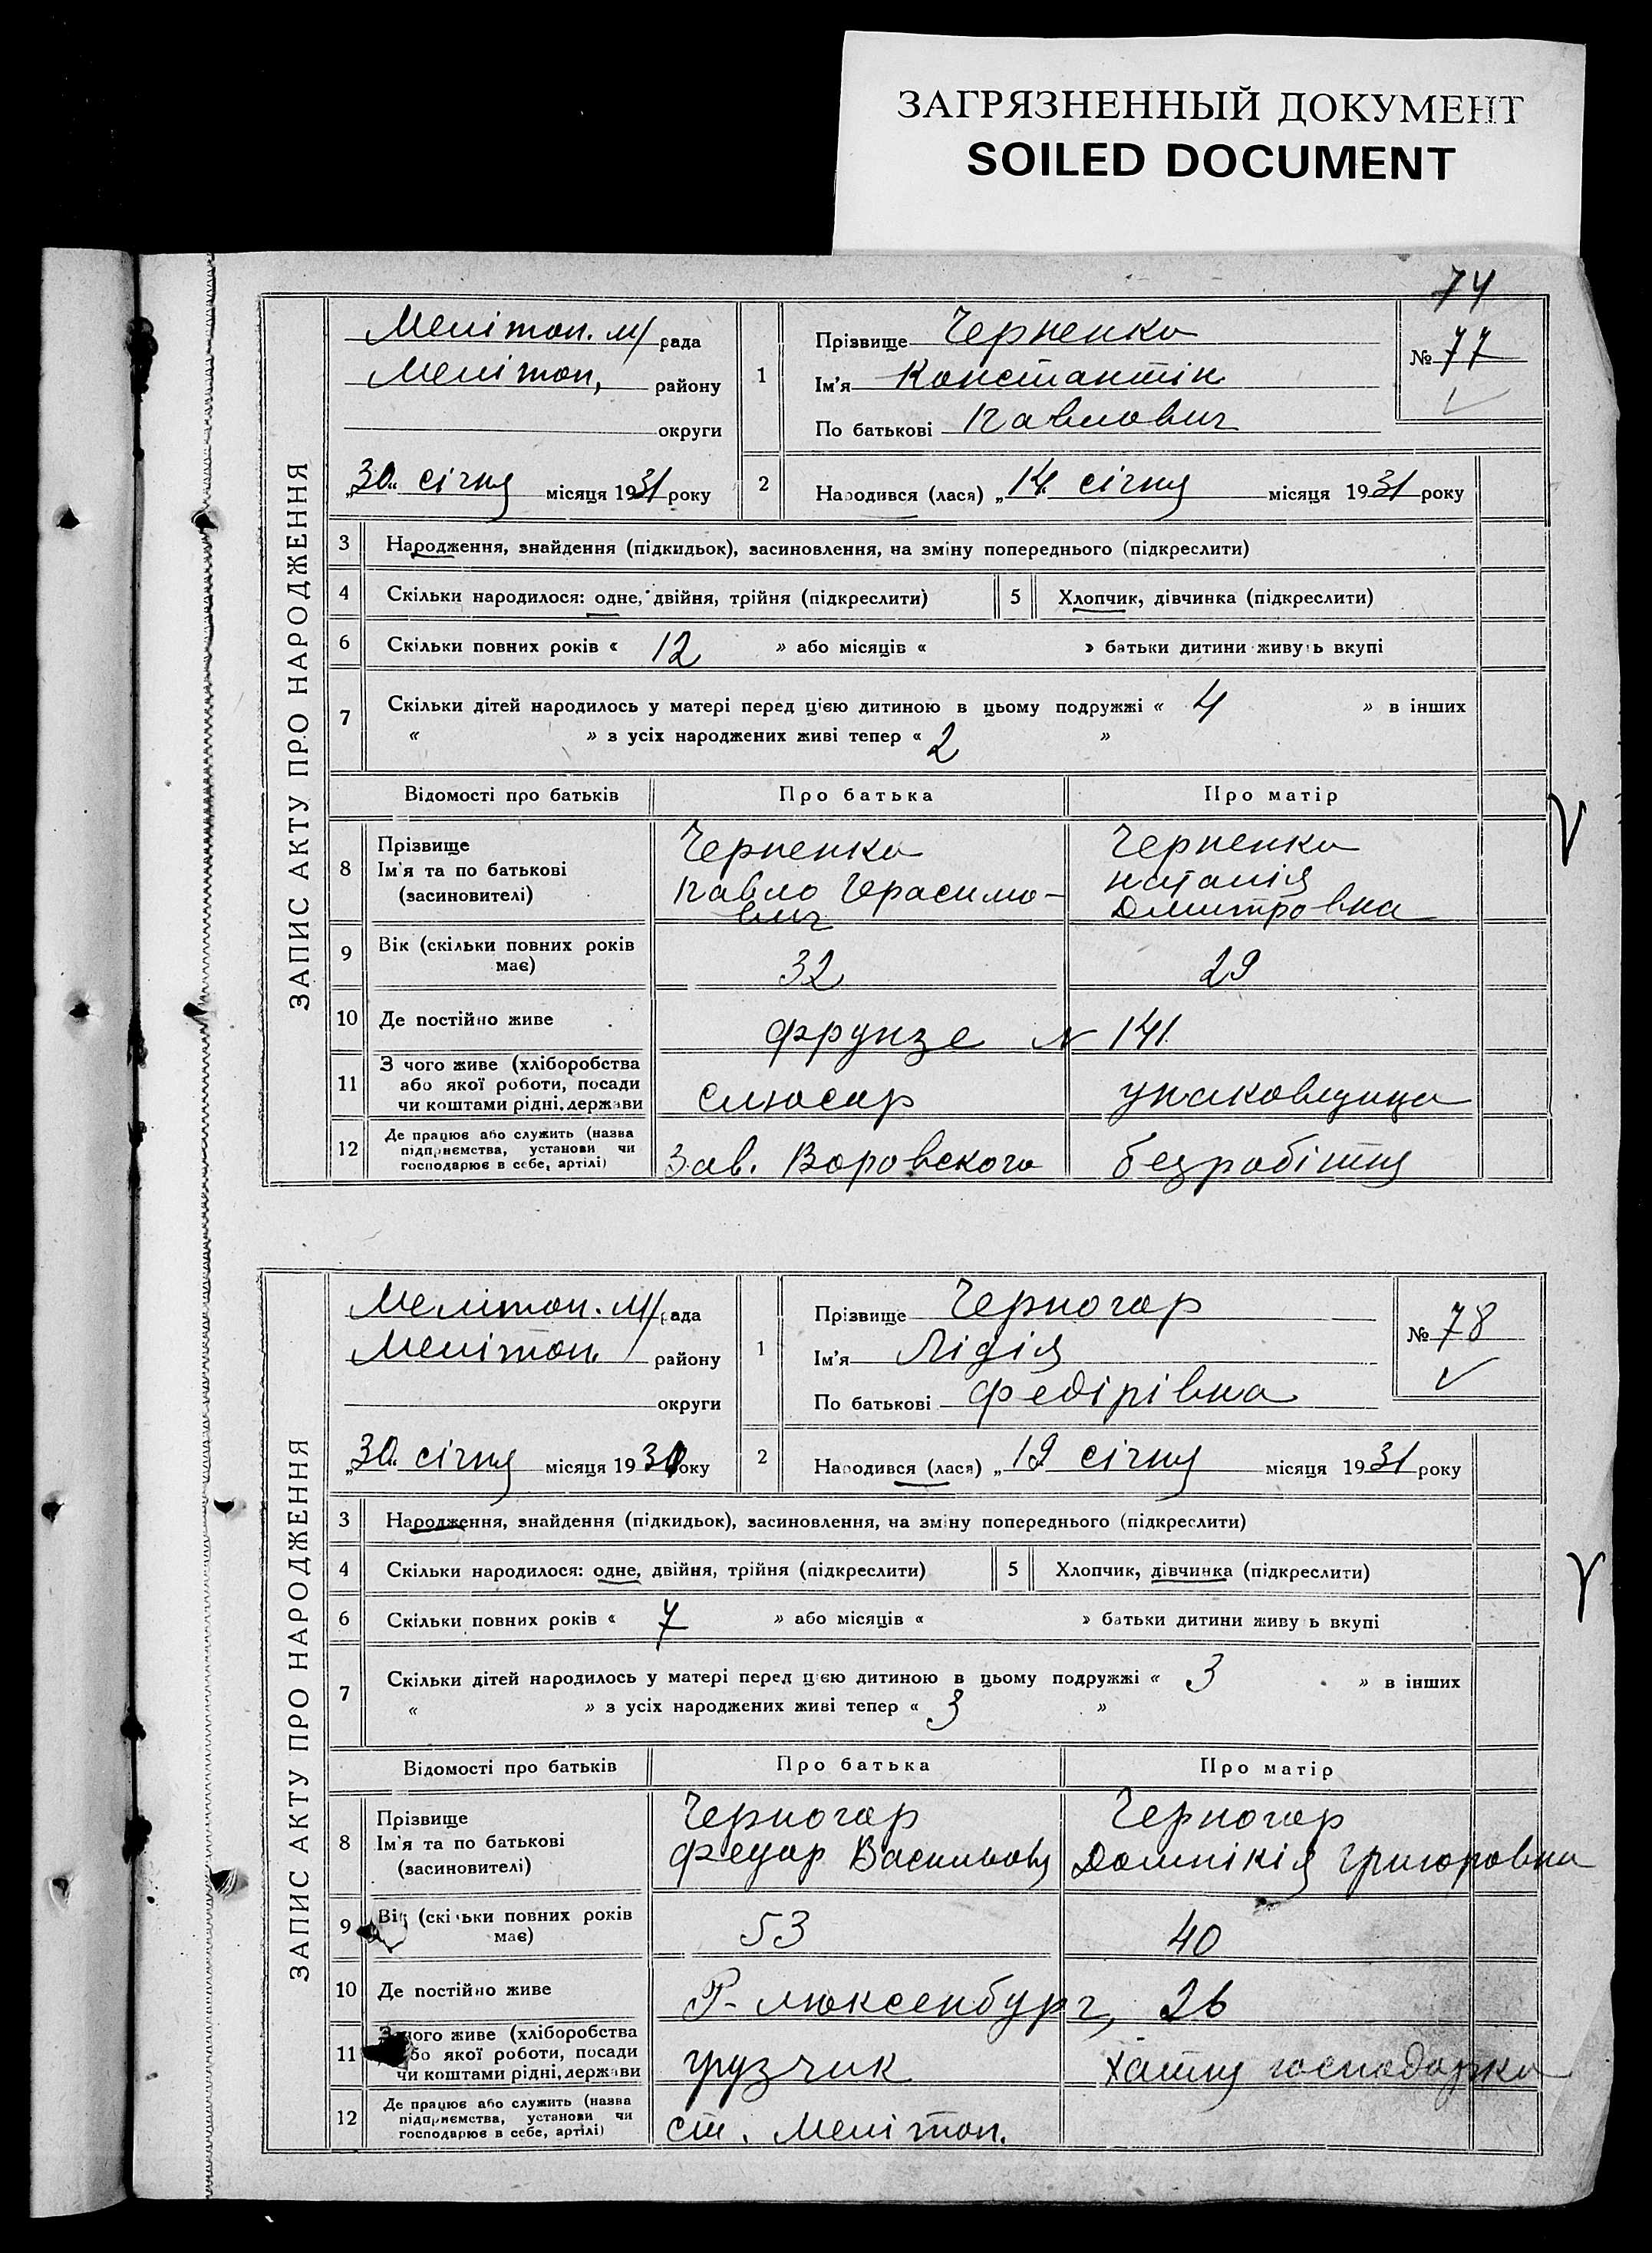 ЗАГРЯЗНЕННЫЙ ДОКУМЕНТ
SOILED DOCUMENT
74
ЗАПИС АКТУ ПРО НАРОДЖЕННЯ
Мелітоп. м/рада
Мелітоп, району
округи
„30" січня місяця 1931 року
1
Прізвище Черненко
Ім'я Константін
По батькові Павлович
№ 77
2
Народився (лася) „14" січня місяця 1931 року
3 Народження, знайдення (підкидьок), засиновлення, на зміну попереднього (підкреслити)
4 Скільки народилося: одне, двійня, трійня (підкреслити) 5 Хлопчик, дівчинка (підкреслити)
6 Скільки повних років « 12 » або місяців « » батьки дитини живуть вкупі
7 Скільки дітей народилось у матері перед цією дитиною в цьому подружжі « 4 » в інших
« » з усіх народжених живі тепер « 2 »
Відомості про батьків Про батька Про матір
8 Прізвище
Ім'я та по батькові
(засиновителі)
Черненко
Павло Герасимо-
вич
Черненко
Наталія
Дмитровна
9 Вік (скільки повних років
має)
32 29
10 Де постійно живе Фрунзе N 141
11 З чого живе (хліборобства
або якої роботи, посади
чи коштами рідні, держави
слюсар упаковщица
12 Де працює або служить (назва
підприємства, установи чи
господарює в себе, артілі)
Зав. Воровского безробітня
ЗАПИС АКТУ ПРО НАРОДЖЕННЯ
Мелітоп. М/рада
Мелітоп. району
округи
„30" січня місяця 1931 року
1
Прізвище Черногор
Ім'я Лідія
По батькові Федірівна
№ 78
2
Народився (лася) „19 січня місяця 1931 року
3 Народження, знайдення (підкидьок), засиновлення, на зміну попереднього (підкреслити)
4 Скільки народилося: одне, двійня, трійня (підкреслити) 5 Хлопчик, дівчинка (підкреслити)
6 Скільки повних років « 7 » або місяців « » батьки дитини живуть вкупі
7 Скільки дітей народилось у матері перед цією дитиною в цьому подружжі « 3 » в інших
« » з усіх народжених живі тепер « 3 »
Відомості про батьків Про батька Про матір
8 Прізвище
Ім'я та по батькові
(засиновителі)
Черногор
Федор
Черногор
Домнікія Григоровна
9 Вік (скільки повних років
має)
53 40
10 Де постійно живе Р-люксенбург, 26
11 З чого живе (хліборобства
або якої роботи, посади
чи коштами рідні, держави
грузчик хатня господарка
12 Де працює або служить (назва
підприємства, установи чи
господарює в себе, артілі)
ст. Мелітоп.